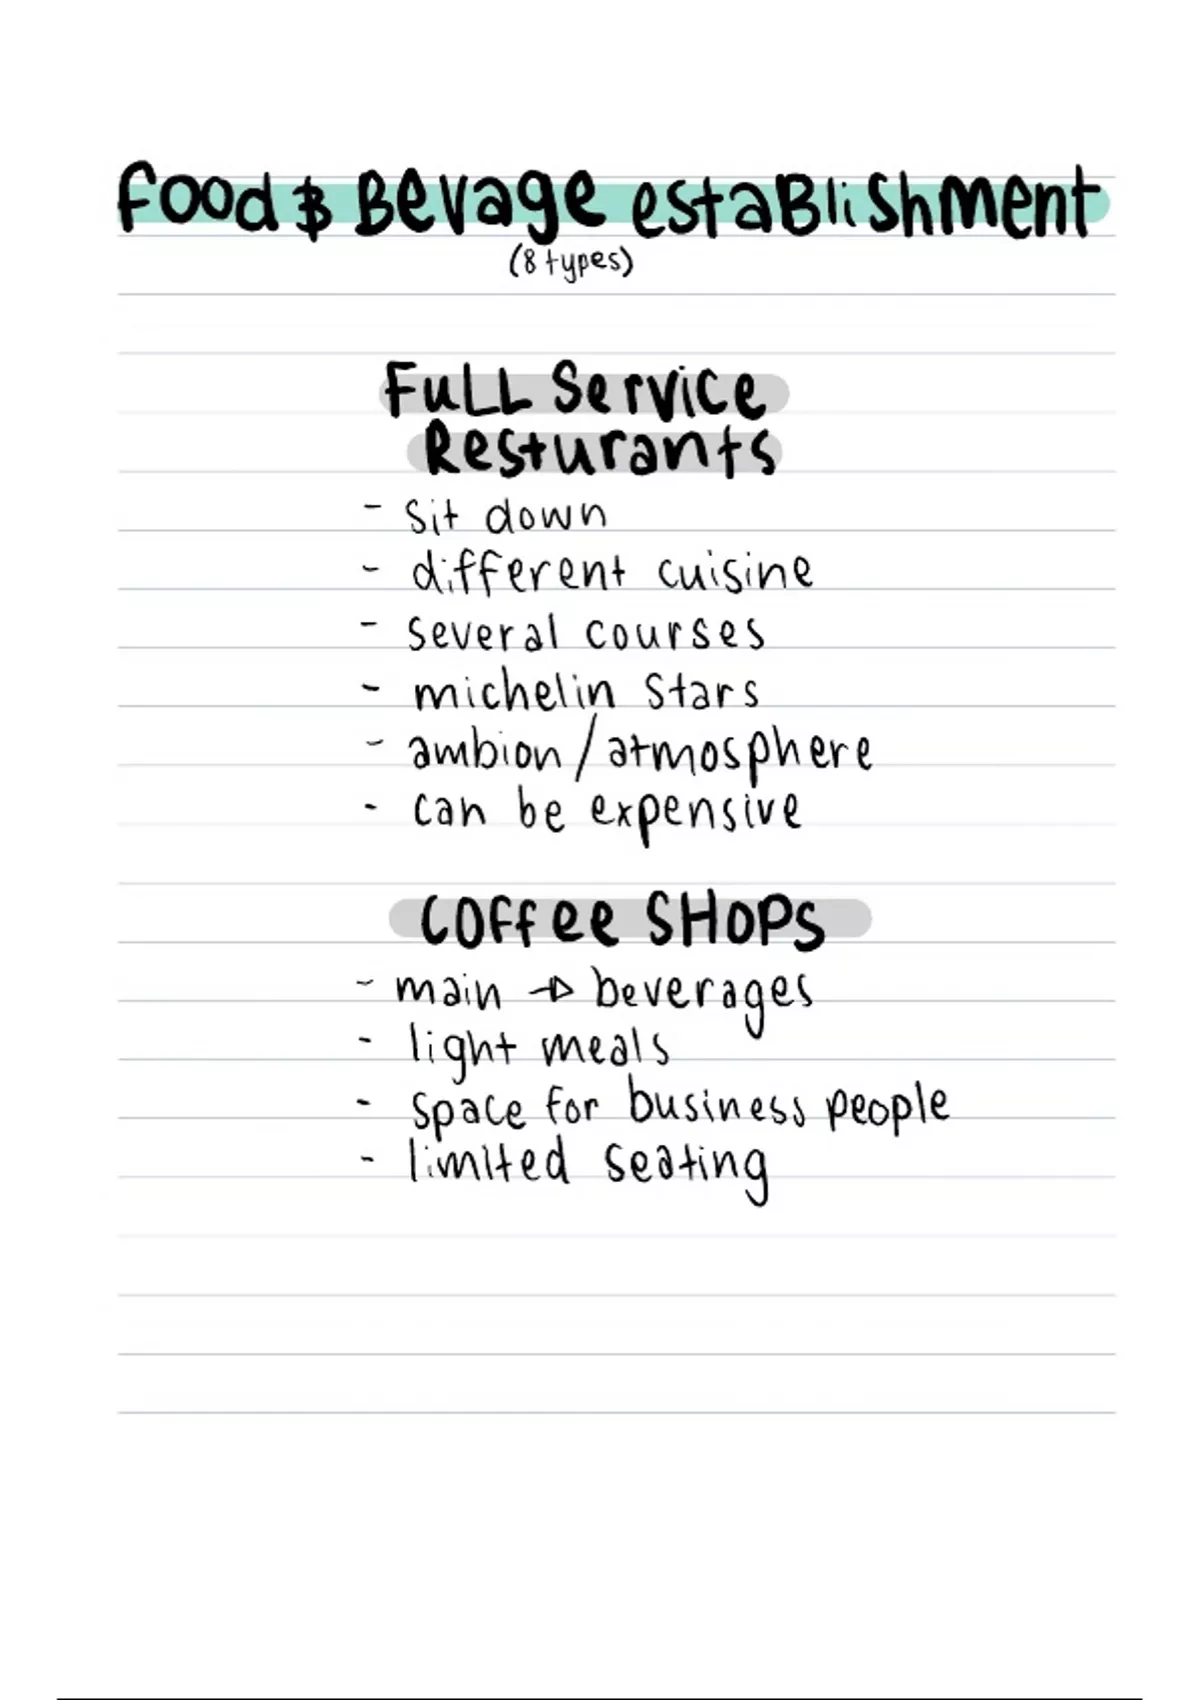 Food & Bevage establishment
(8 types)
Full Service
Resturants
- sit down
- different cuisine
- several courses
- michelin stars
- ambion / atmosphere
- can be expensive
Coffee SHOPS
- main → beverages
- light meals
- space for business people
- limited seating